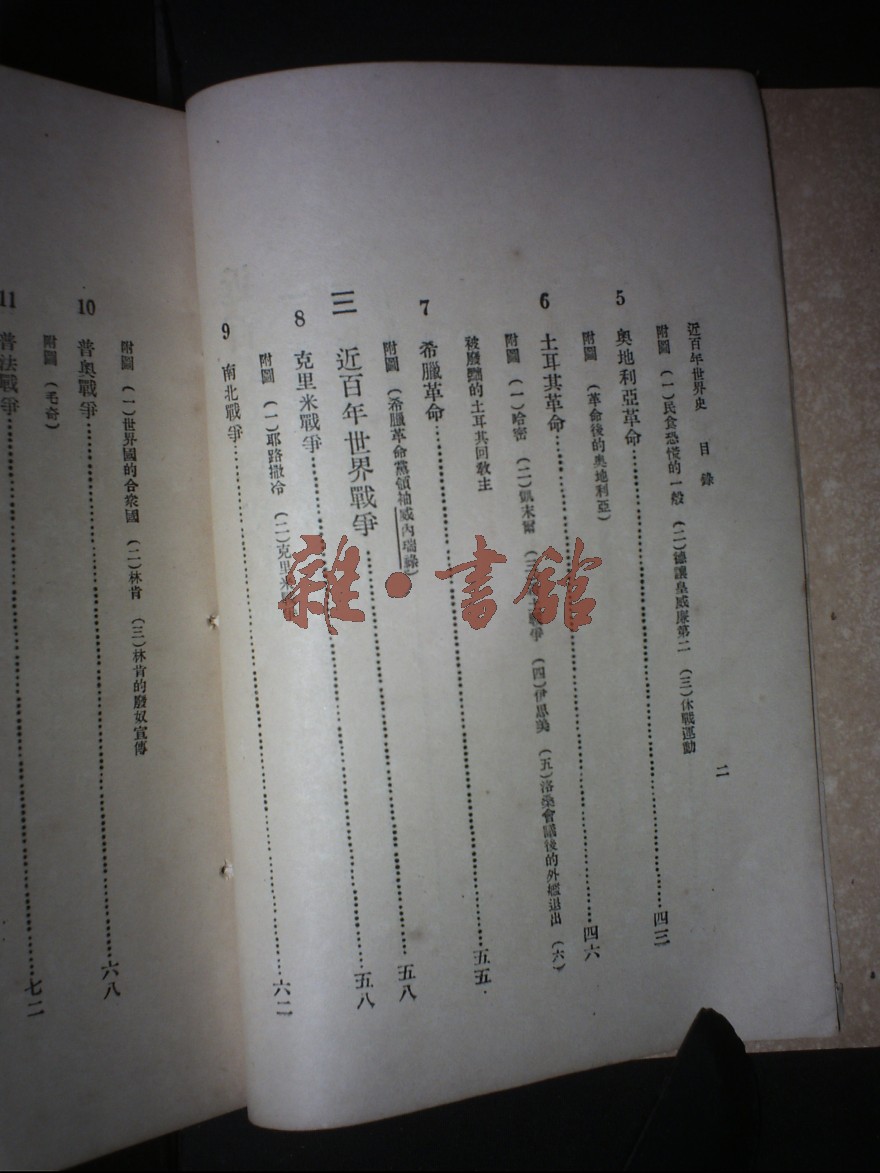 近百年世界史 目錄 二
附圖 (一)民食恐慌的一般 (二)德讓皇威廉第二 (三)休戰運動
5 奧地利亞革命……四三
附圖 (革命後的奧地利亞)
6 土耳其革命……四六
附圖 (一)哈密 (二)凱末爾 (三) 戰爭 (四)伊思美 (五)洛桑會議後的外艦退出 (六)
被廢黜的土耳其回教主
7 希臘革命……五五
附圖 (希臘革命黨領袖威內瑞祿)
三 近百年世界戰爭……五八
8 克里米戰爭……五八
附圖 (一)耶路撒冷 (二)克里米
9 南北戰爭……六二
附圖 (一)世界國的合衆國 (二)林肯 (三)林肯的廢奴宣傳
10 普奧戰爭……六八
附圖 (毛奇)
11 普法戰爭……七二
雜·書館